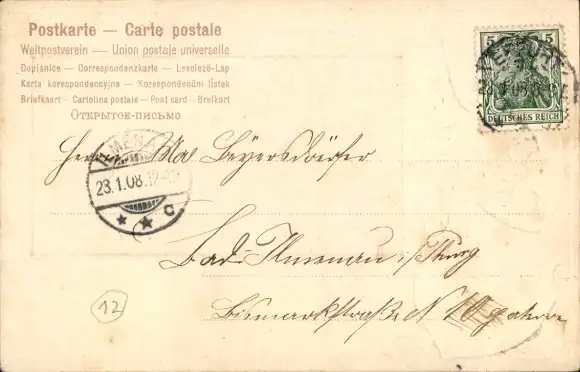 Postkarte — Carte postale
Weltpostverein — Union postale universelle
Dopisnice — Correspondenzkarte — Levelező-Lap
Karta korespondencyjna — Korespondenční lístek
Briefkaart — Cartolina postale — Post card — Brefkort
ОТКРЫТОЕ-ПИСЬМО
5 5
DEUTSCHES REICH
Herrn Beyersdörfer
23.1.08.
* * C
Bad-Ilmenau i/Thürg
Bismarkstraße N 10
12